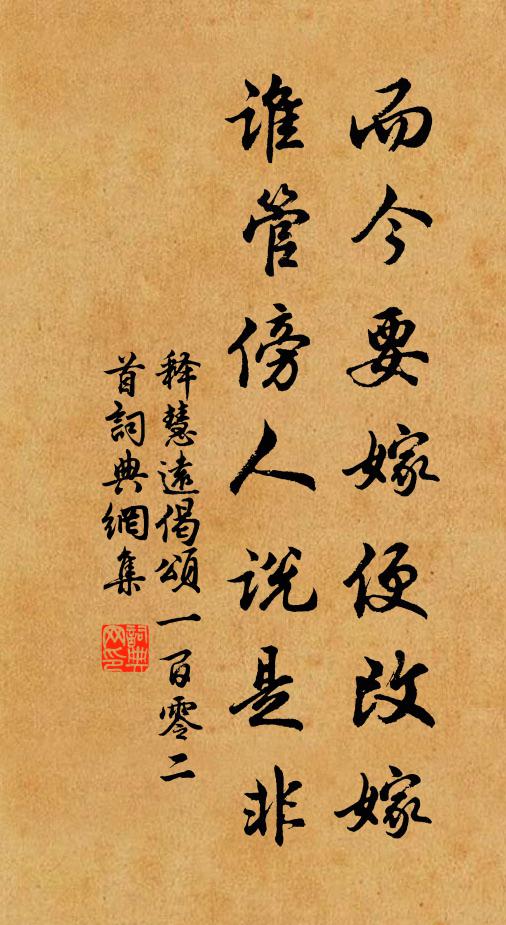 而今要嫁便改嫁
谁管傍人说是非
释慧遠偈頌一百零二
首詞典網集
詞典网印